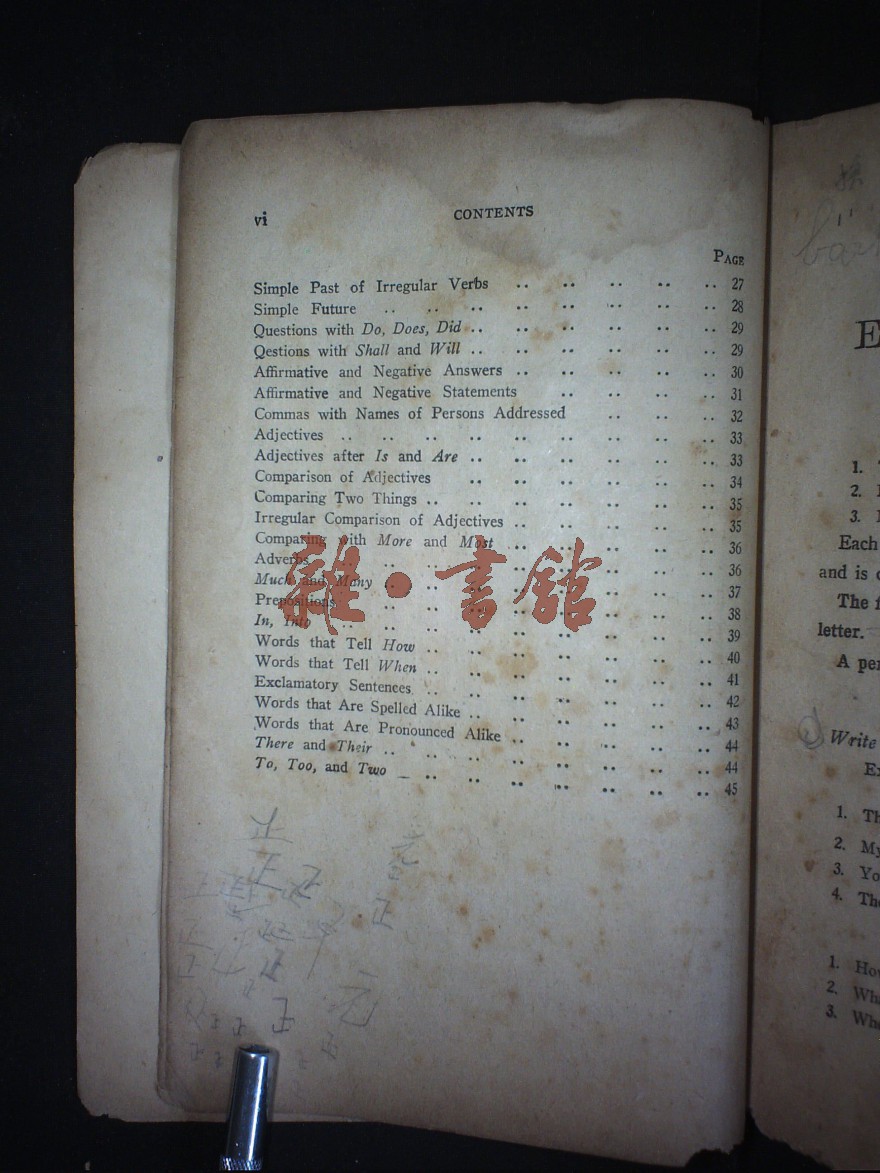 vi CONTENTS
PAGE
Simple Past of Irregular Verbs .. .. .. .. .. 27
Simple Future .. .. .. .. .. .. .. .. 28
Questions with Do, Does, Did .. .. .. .. .. .. 29
Qestions with Shall and Will .. .. .. .. .. .. 29
Affirmative and Negative Answers .. .. .. .. .. 30
Affirmative and Negative Statements .. .. .. .. 31
Commas with Names of Persons Addressed .. .. .. 32
Adjectives .. .. .. .. .. .. .. .. .. 33
Adjectives after Is and Are .. .. .. .. .. .. 33
Comparison of Adjectives .. .. .. .. .. .. 34
Comparing Two Things .. .. .. .. .. .. .. 35
Irregular Comparison of Adjectives .. .. .. .. .. 35
Comparing with More and Most .. .. .. .. .. 36
Adverbs .. .. .. .. .. .. .. .. 36
Much and Many .. .. .. .. .. .. .. .. 37
Prepositions .. .. .. .. .. .. .. .. 38
In, Into .. .. .. .. .. .. .. .. 39
Words that Tell How .. .. .. .. .. .. .. 40
Words that Tell When .. .. .. .. .. .. .. 41
Exclamatory Sentences .. .. .. .. .. .. .. 42
Words that Are Spelled Alike .. .. .. .. .. .. 43
Words that Are Pronounced Alike .. .. .. .. .. 44
There and Their .. .. .. .. .. .. .. .. 44
To, Too, and Two .. .. .. .. .. .. .. 45
雜·書館
E
1.
2.
3.
Each
and is
The
letter.
A
Write
1.
2. My
3.
4.
1.
2.
3.